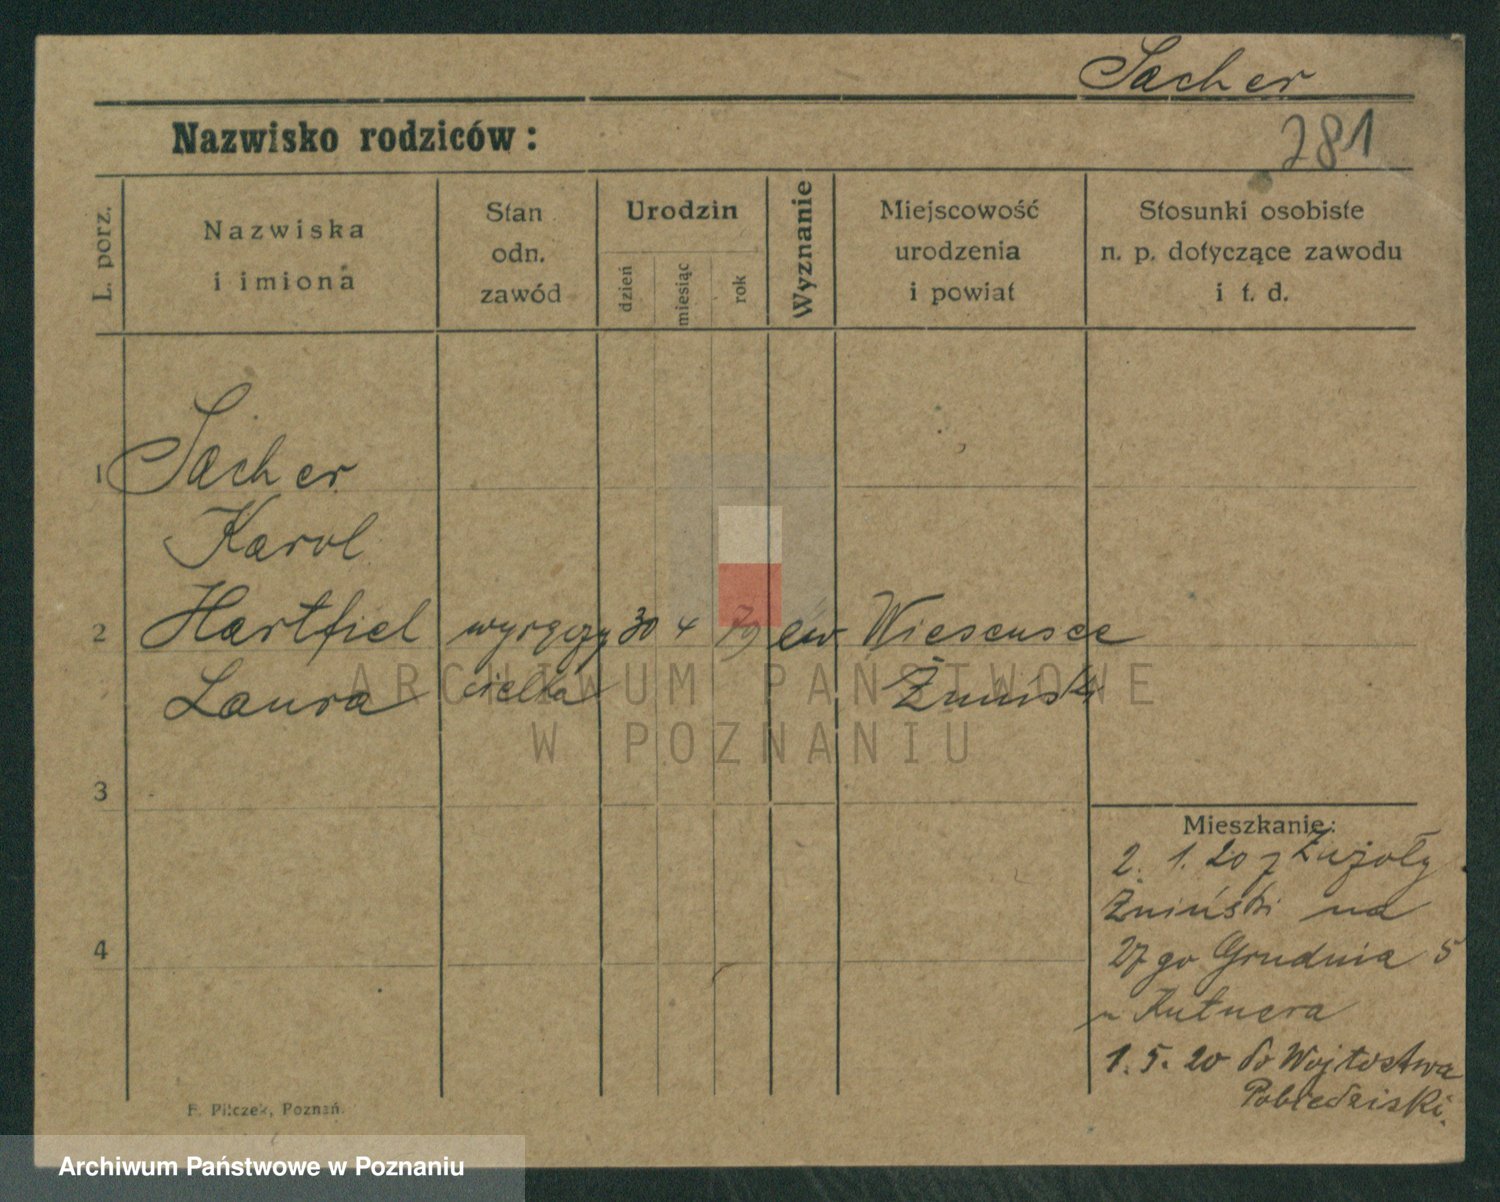 Sacher
281
Nazwisko rodziców:
L. porz.
Nazwiska
i imiona
Stan
odn.
zawód
Urodzin
dzień
miesiąc
rok
Wyznanie
Miejscowość
urodzenia
i powiat
Stosunki osobiste
n. p. dotyczące zawodu
i t. d.
1 Sacher
Karol
2 Hartfiel wyręczy 30 4 79 ew. Wiesensee
Laura cielka Żniński
ARCHIWUM PAŃSTWOWE
W POZNANIU
3
Mieszkanie:
2. 1. 20 z
Żniński na
4
27 go Grudnia 5
u Kutnera
1. 5. 20 do Wojtostwa
Pobiedziski.
F. Pilczek, Poznań.
Archiwum Państwowe w Poznaniu